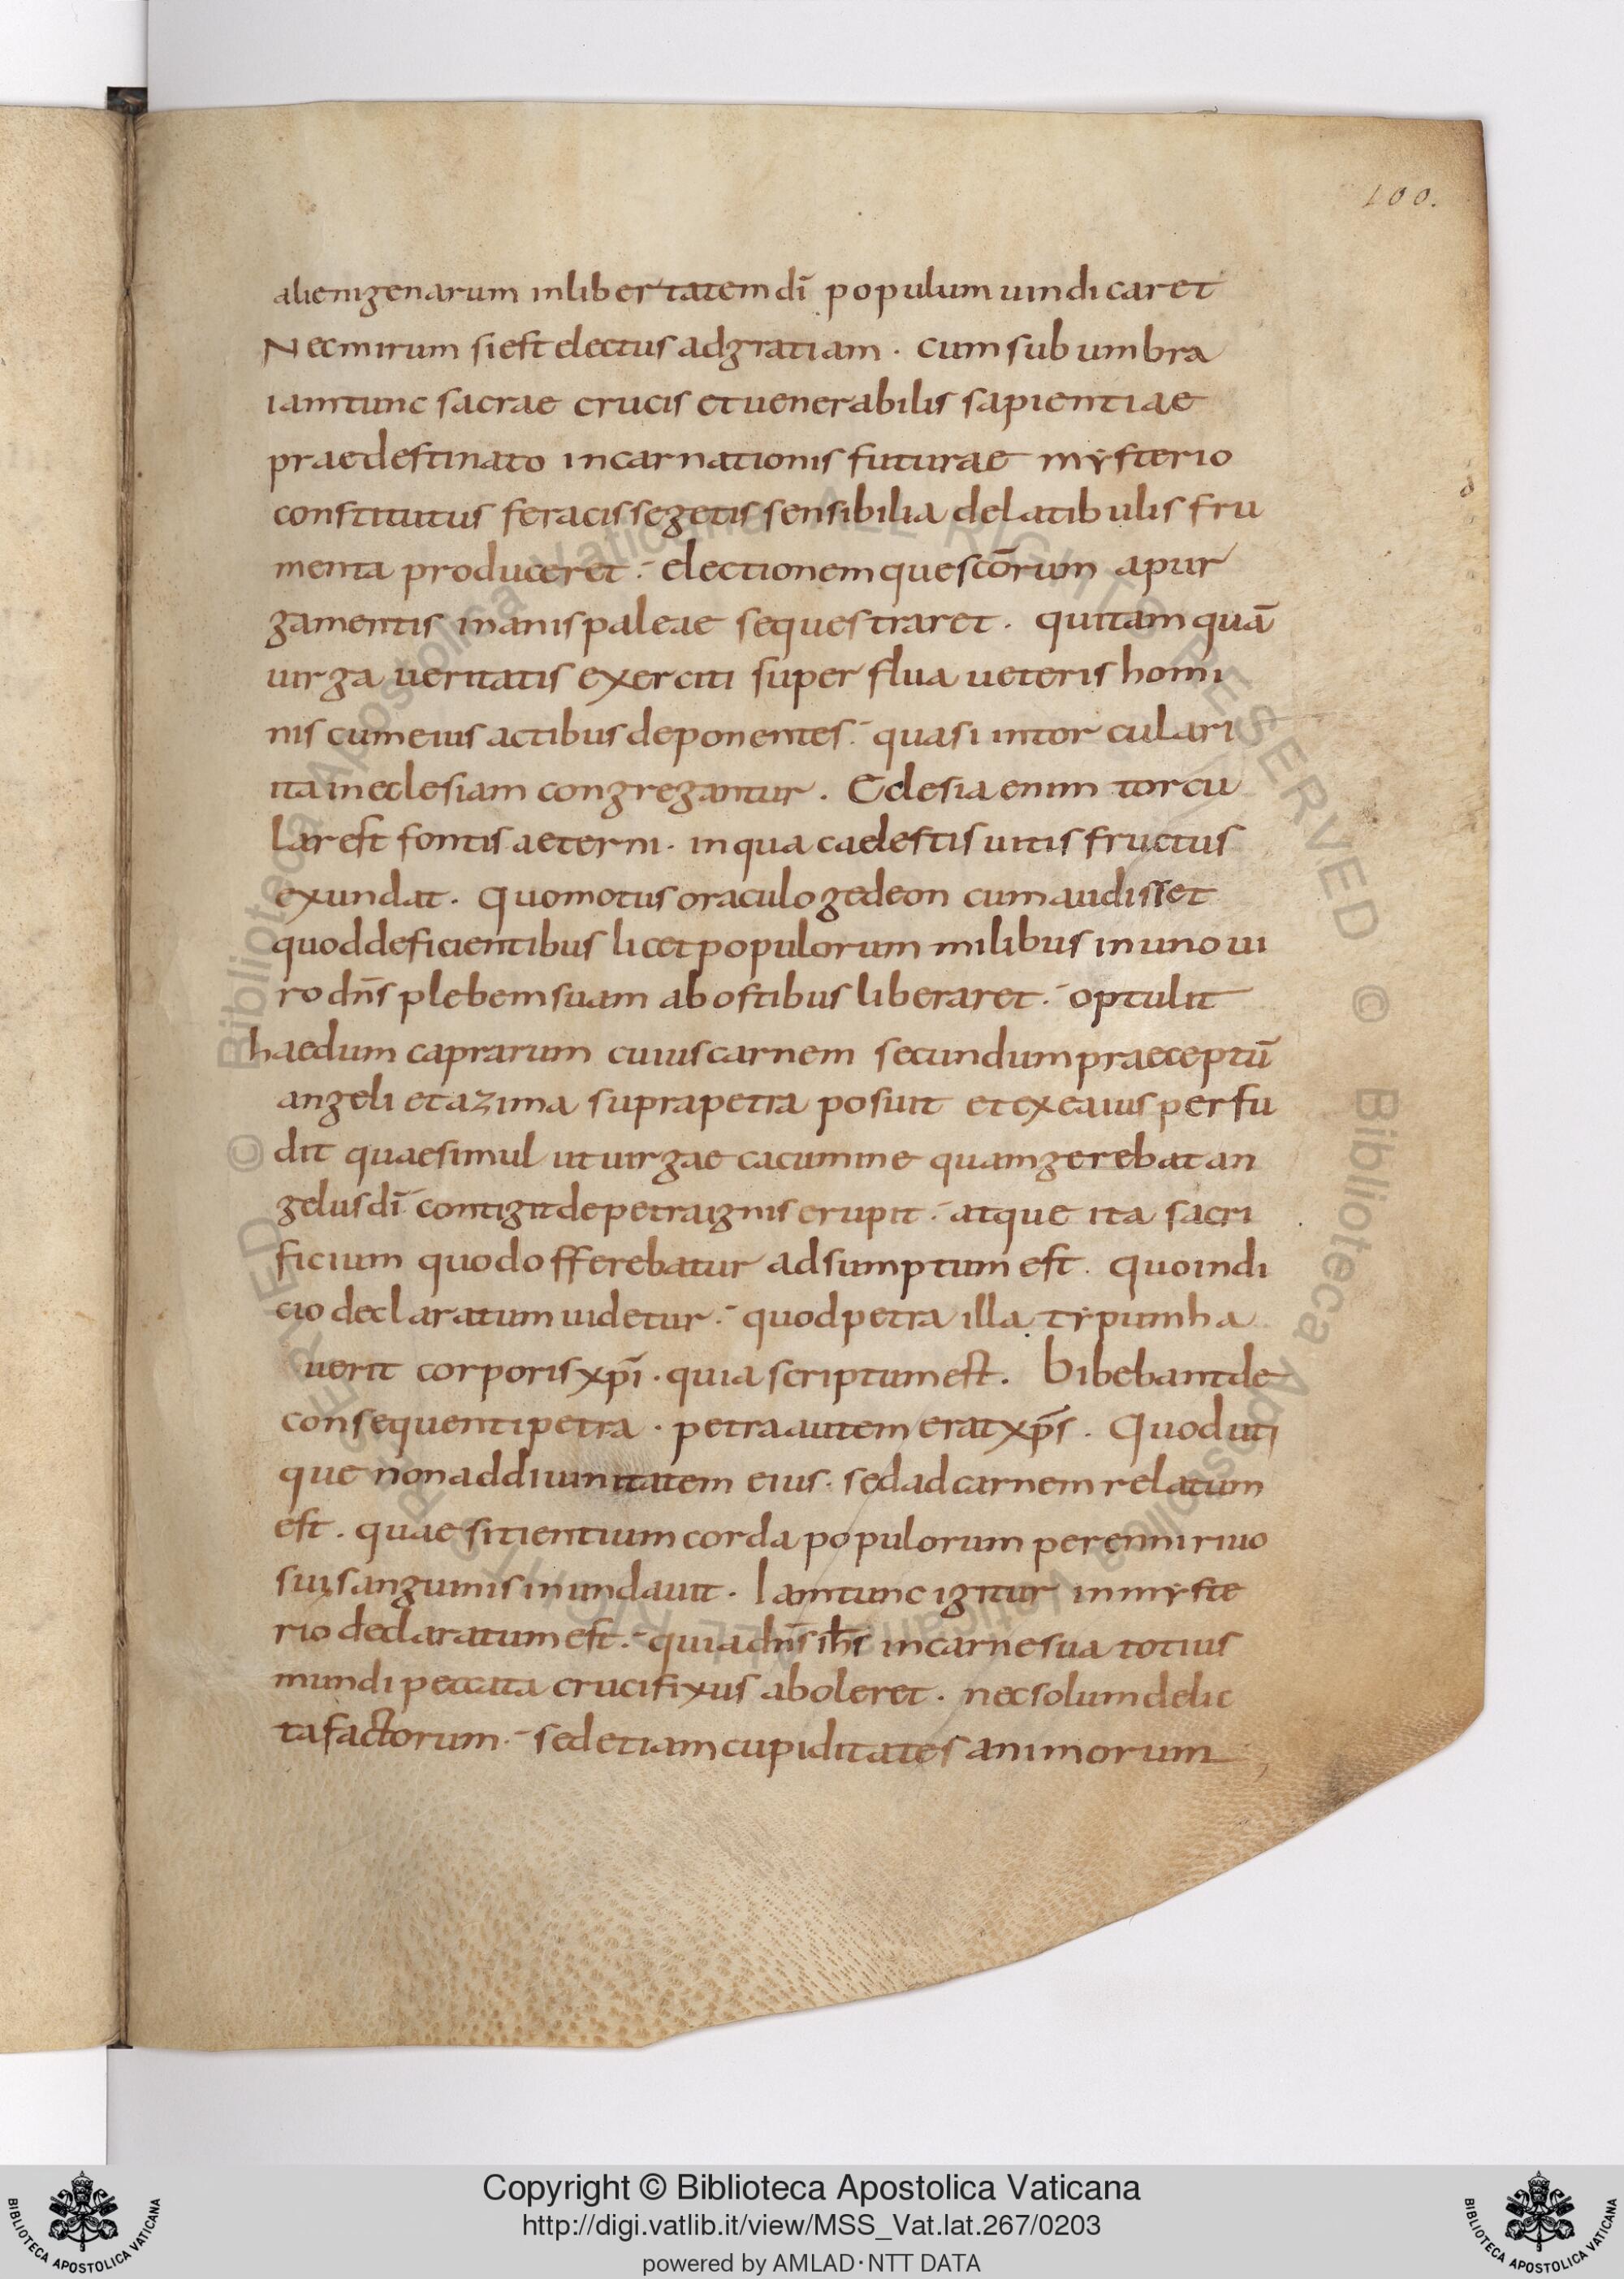 100.
alienigenarum inlibertatem dī populum uindicaret
Necmirum siest electus adgratiam · cum sub umbra
iamtunc sacrae crucis etuenerabilis sapientiae
praedestinato incarnationis futurae mysterio
constitutus feracis segetis sensibilia delatibulis fru
menta produceret :- electionemque scōrum apur
gamentis inanis paleae sequestraret . qui tamquā
uirga ueritatis exerciti superflua ueteris homi
nis cum eius actibus deponentes :- quasi intorculari
ita ineclesiam congregantur . Eclesia enim torcu
lar est fontis aeterni · inqua caelestis uitis fructus
exundat . Quomotus oraculo gedeon cum audisset
quod deficientibus licet populorum milibus inuno ui
ro dn̄s plebem suam abostibus liberaret :- optulit
haedum caprarum cuius carnem secundum praeceptū
angeli et azima suprapetra posuit et exeauius perfu
dit quae simul ut uirgae cacumine quam gerebat an
gelus dī contigit depetra ignis erupit :- atque ita sacri
ficium quod offerebatur adsumptum est . Quoindi
cio declaratum uidetur :- quod petra illa typum ha
uerit corporis xp̄i · quia scriptum est . Bibebant de
consequenti petra · petra autem erat xp̄s . Quod uti
que non ad diuinitatem eius · sed ad carnem relatum
est . quae sitientium corda populorum perenni riuo
sui sanguinis inundauit . Iamtunc igitur inmyste
rio declaratum est :- quia dn̄s ih̄s incarne sua totius
mundi peccata crucifixus aboleret . nec solum delic
ta factorum :- sed etiam cupiditates animorum
Copyright © Biblioteca Apostolica Vaticana
http://digi.vatlib.it/view/MSS_Vat.lat.267/0203
powered by AMLAD·NTT DATA
BIBLIOTECA APOSTOLICA VATICANA
BIBLIOTECA APOSTOLICA VATICANA